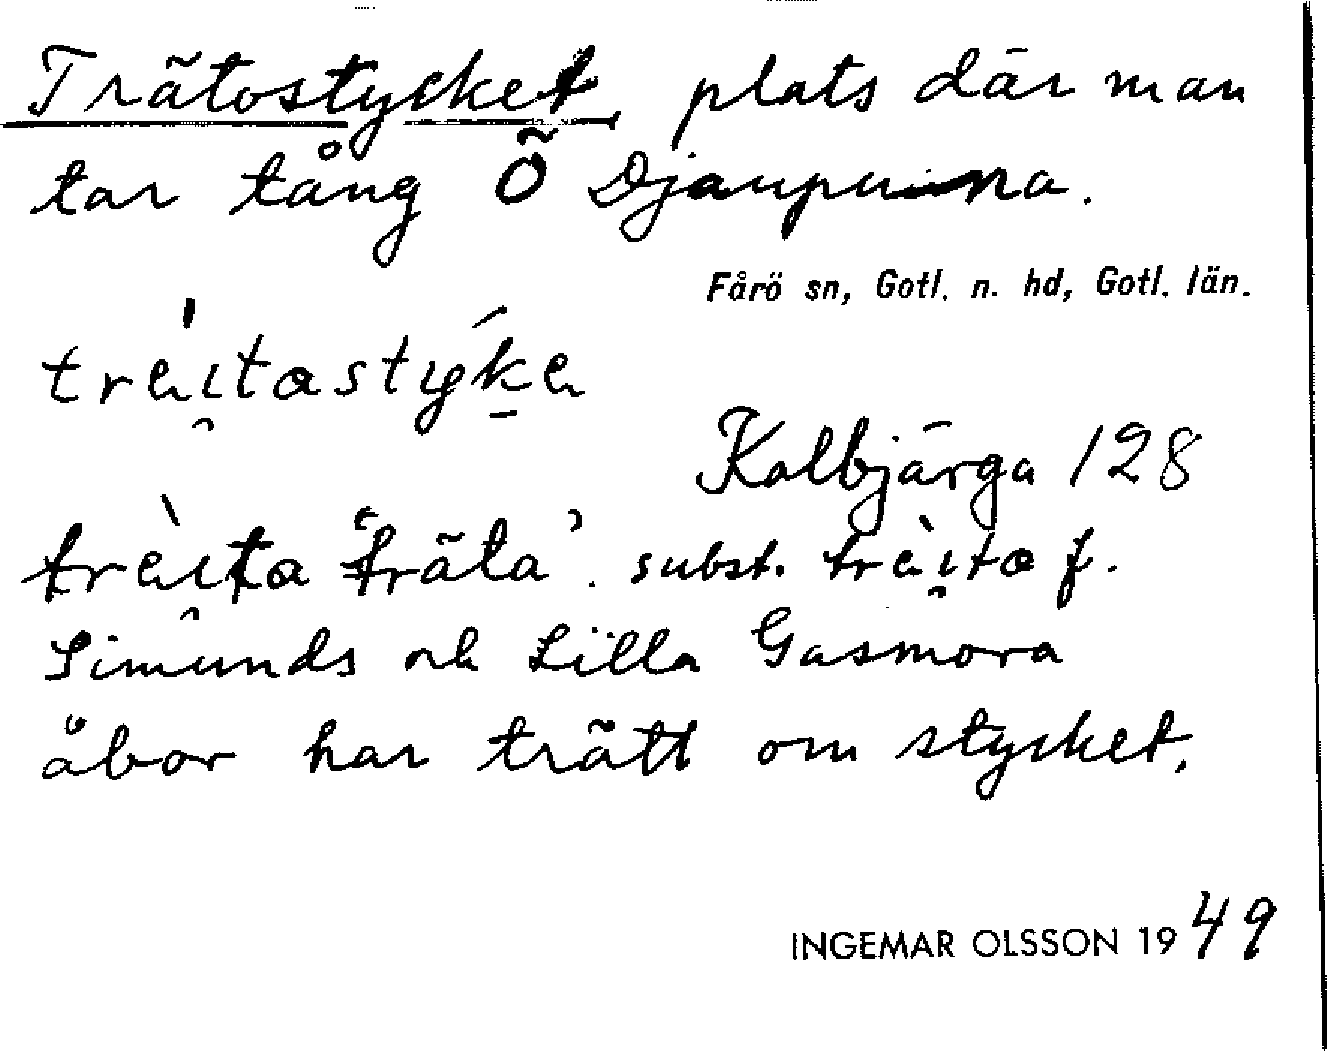 Trätostycket, plats där man
tar tång Ö Djaupunna.
Fårö sn, Gotl. n. hd, Gotl. län.
träi̯tastyḱä
Kalbjärga 128
trä̀i̯ta 'träta'. subst. trä̀i̯ta f.
Simunds och Lilla Gasmora
åbor har trätt om stycket.
INGEMAR OLSSON 1949